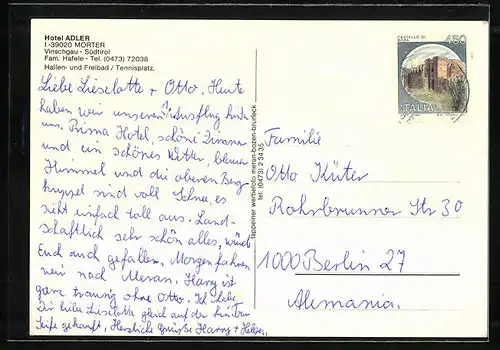 Hotel ADLER
I-39020 MORTER
Vinschgau - Südtirol
Fam. Hafele - Tel. (0473) 72038
Hallen- und Freibad / Tennisplatz.
Liebe Lieselotte + Otto. Heute
haben wir unseren 1. Ausflug hinter
uns. Prima Hotel, schöne Zimmer
und ein schönes Wetter, blauer
Himmel und die oberen Berg-
kuppel sind voll Schnee, es
sieht einfach toll aus. Land-
schaftlich sehr schön alles, würde
Euch auch gefallen. Morgen fahren
wir nach Meran. Harry ist
ganz traurig ohne Otto. Ich habe
Dir liebe Lieselotte gleich auf der hin Tour
Seife gekauft. Herzliche Grüße Harry + Helga.
tappeiner werbefoto meran-bozen-bruneck
tel. (0473) 2 34 35
CASTELLO DI
450
ITALIA
Familie
Otto Küter
Rohrbrunner Str 30
1000 Berlin 27
Alemania.